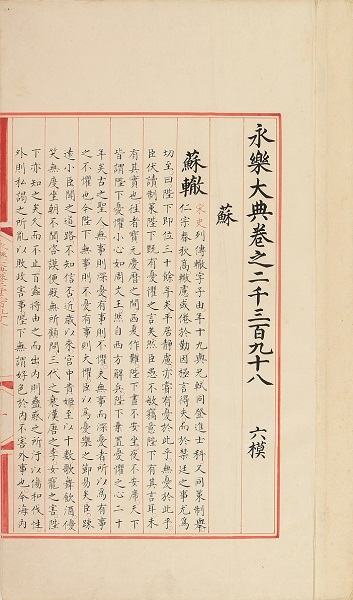 永樂大典卷之二千三百九十八 六模
蘇
蘇轍
宋史列傳轍字子由年十九與兄軾同登進士科又同策制舉
仁宗春秋高轍慮或倦於勤因極言得失而於禁廷之事尤為
切至曰陛下即位三十餘年矣平居靜慮亦嘗有憂於此乎無憂於此乎
臣伏讀制策陛下既有憂懼之言矣然臣愚不敏竊意陛下有其言耳未
有其實也往者寶元慶曆之間西夏作難陛下晝不安坐夜不安席天下
皆謂陛下憂懼小心如周文王然自西方解兵陛下棄置憂懼之心二十
年矣古之聖人無事則深憂有事則不懼夫無事而深憂者所以為有事
之不懼也今陛下無事則不憂有事則大懼臣以為憂樂之節易矣臣疎
遠小臣聞之道路不知信否近歲以來宮中貴姬至以千數歌舞飲酒優
笑無度坐朝不聞咨謨便殿無所顧問三代之衰漢唐之季女寵之害陛
下亦知之矣久而不止百蠹將由之而出內則蠱惑之所汙以傷和伐性
外則私謁之所亂以敗政害事陛下無謂好色於內不害外事也今海內